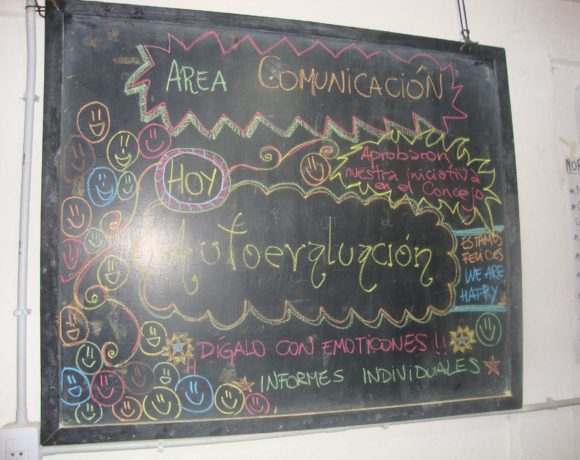 AREA COMUNICACIÓN
HOY
Aprobaron
nuestra iniciativa
en el Concejo
Autoevaluación
ESTAMOS
FELICES
WE ARE
HAPPY
DÍGALO CON EMOTICONES!!
INFORMES INDIVIDUALES